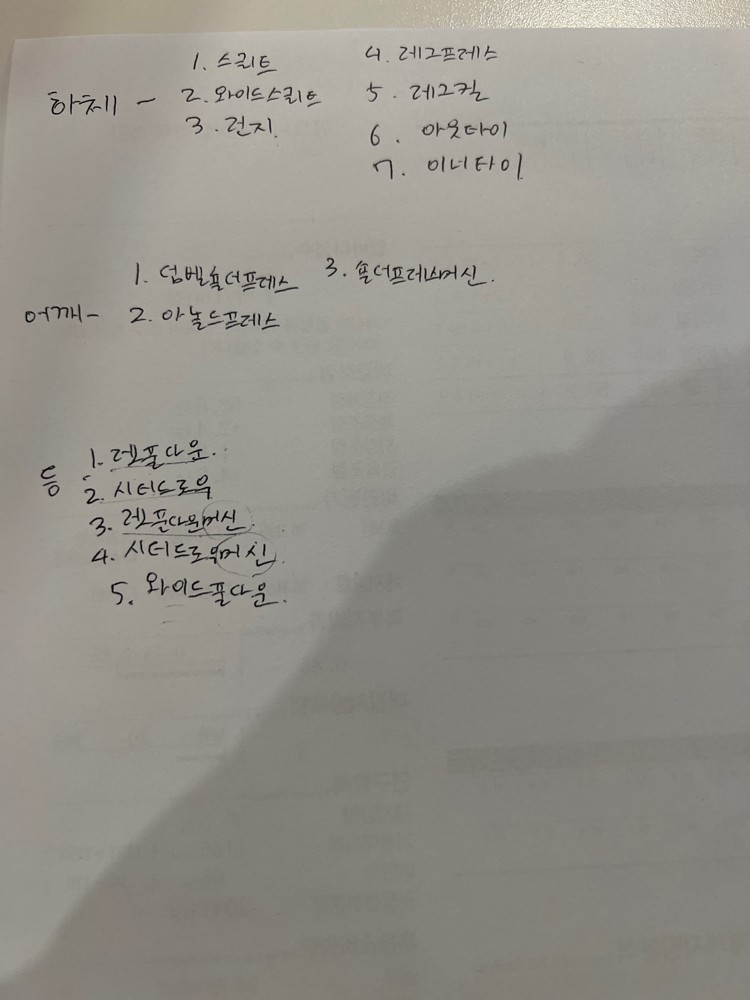 하체 - 1. 스쿼트
2. 와이드스쿼트
3. 런지.
4. 레그프레스
5. 레그컬
6. 아웃타이
7. 이너타이
어깨 - 1. 덤벨숄더프레스
2. 아놀드프레스
3. 숄더프레스머신.
등 1. 렛풀다운.
2. 시티드로우
3. 렛풀다운머신.
4. 시티드로우머신.
5. 와이드풀다운.